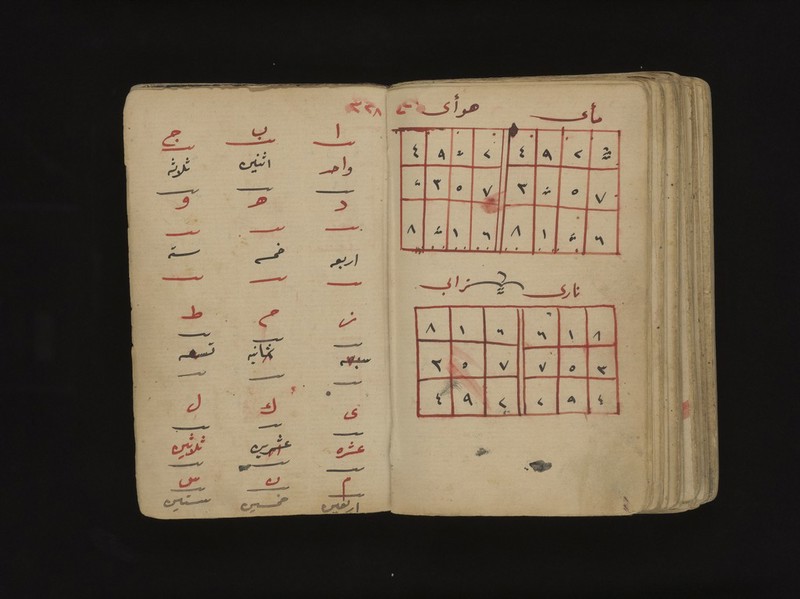 مأى هوأى
٧ ٢ ٩ ٤ ٢ ٩ ٤
٧ ٥ ٣ ٧ ٥ ٣
٦ ١ ٨ ٦ ١ ٨
نارى ترابي
٨ ١ ٦ ٦ ١ ٨
٣ ٥ ٧ ٧ ٥ ٣
٤ ٩ ٢ ٢ ٩ ٤
٣٢٨
ا ب ج
واحد اثنين ثلاثه
د ه و
اربعه خمسه سته
ز ح ط
سبعه ثمانيه تسعه
ى ك ل
عشره عشرين ثلاثين
م ن س
اربعين خمسين ستين